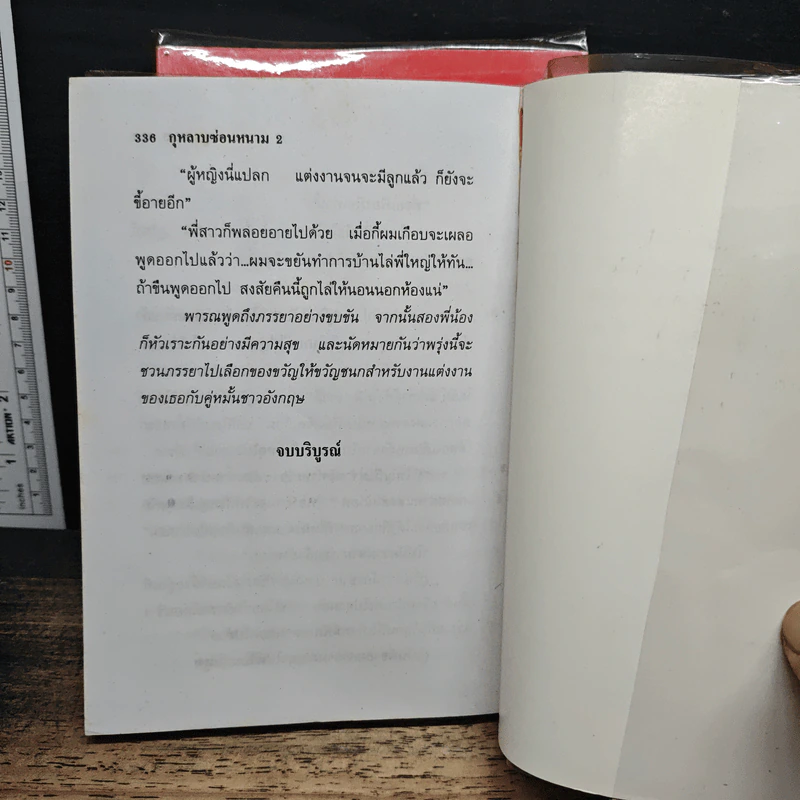 336 กุหลาบซ่อนหนาม 2
“ผู้หญิงนี่แปลก แต่งงานจนจะมีลูกแล้ว ก็ยังจะ
ขี้อายอีก”
“พี่สาวก็พลอยอายไปด้วย เมื่อกี้ผมเกือบจะเผลอ
พูดออกไปแล้วว่า...ผมจะขยันทำการบ้านไล่พี่ใหญ่ให้ทัน...
ถ้าขืนพูดออกไป สงสัยคืนนี้ถูกไล่ให้นอนนอกห้องแน่”
พารณพูดถึงภรรยาอย่างขบขัน จากนั้นสองพี่น้อง
ก็หัวเราะกันอย่างมีความสุข และนัดหมายกันว่าพรุ่งนี้จะ
ชวนภรรยาไปเลือกของขวัญให้ขวัญชนกสำหรับงานแต่งงาน
ของเธอกับคู่หมั้นชาวอังกฤษ
จบบริบูรณ์
13
12
11
10
9
8
2
1
AKTION
inches